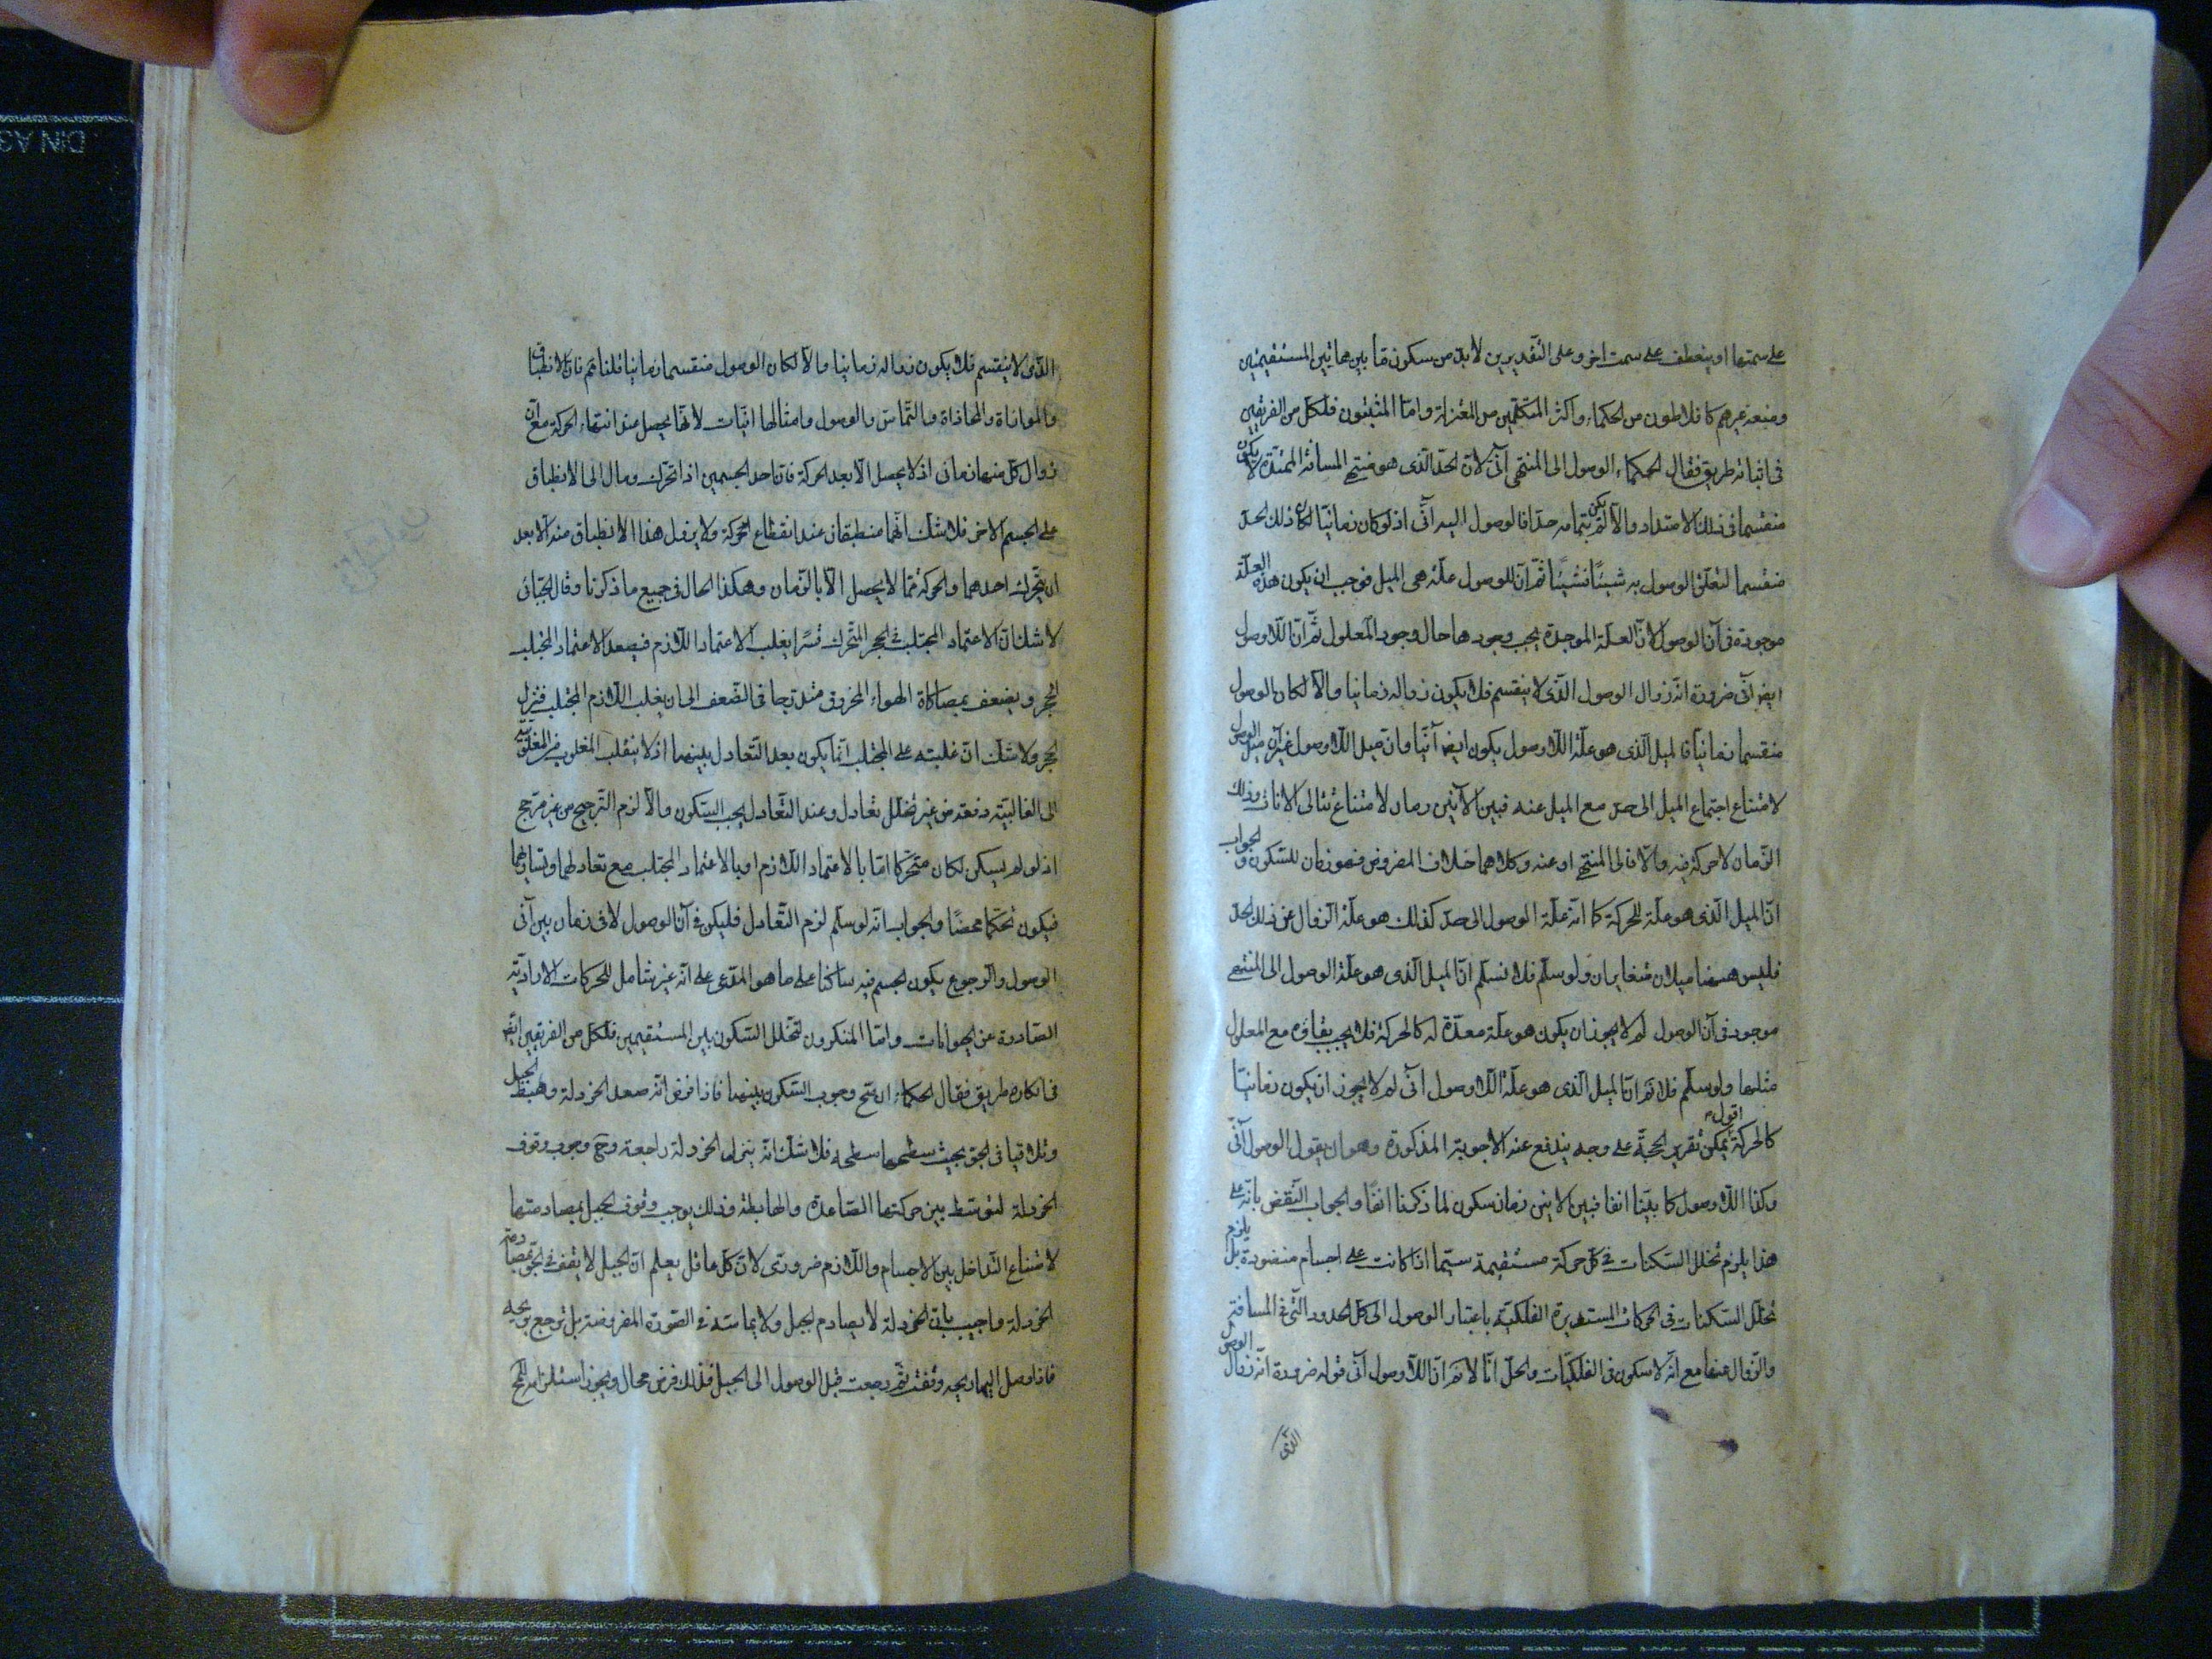 على سمتها او ينعطف على سمت اخر وعلى التقديرين لا بد من سكون فما بين هاتين المستقيمتين
ومنعه غيرهم كافلاطون من الحكماء واكثر المتكلمين من المعتزلة واما المثبتون فلكل من الفريقين
فى اثباته طريق فقال الحكماء الوصول الى المنتهى آنىّ لانّ الحدّ الّذى هو منتهى المسافة الممتدّة لا يكون
منقسما فى ذلك الامتداد والّا لم يكن بتمامه حدّا فالوصول اليه آنىّ اذ لو كان زمانيّا لكان ذلك الحدّ
منقسما لتعلّق الوصول به شيئًا فشيئًا ثمّ انّ للوصول علّة هى الميل فوجب ان يكون هذه العلّة
موجودة فى آن الوصول لانّ العلّة الموجدة يجب وجودها حال وجود المعلول ثمّ انّ اللّاوصول
ايضا آنىّ ضرورة انّه زوال الوصول الّذى لا ينقسم فلا يكون زواله زمانيا والّا لكان الوصول
منقسما زمانيا فالميل الّذى هو علّة اللّاوصول يكون ايضا آنيّا وآن ميل اللّاوصول غير آن ميل الوصول
لامتناع اجتماع الميل الى حدّ مع الميل عنه فبين الآنين زمان لامتناع تتالى الآنات وذلك
الزّمان لا حركة فيه والّا فالى المنتهى او عنه وكلاهما خلاف المفروض فهو زمان للسّكون والجواب
انّ الميل الّذى هو علّة للحركة كما انّه علّة الوصول الى حدّ كذلك هو علّة الزّوال عن ذلك الحدّ
فليس ههنا ميلان متغايران ولو سلّم فلا نسلّم انّ الميل الّذى هو علّة الوصول الى المنتهى
موجود فى آن الوصول لم لا يجوز ان يكون هو علّة معدّة له كالحركة فلا يجب بقاؤه مع المعلول
مثلها ولو سلّم فلا نم انّ الميل الّذى هو علّة اللّاوصول آنىّ لم لا يجوز ان يكون زمانيّا
كالحركة اقول يمكن تقرير الحجّة على وجه يندفع عنه الاجوبة المذكورة وهو ان يقول الوصول آنىّ
وكذا اللّاوصول كما بيّنا آنفا فبين الآنين زمان سكون لما ذكرنا آنفًا والجواب النّقض بانّه على
هذا يلزم تخلّل السّكنات فى كلّ حركة مستقيمة سيّما اذا كانت على اجسام منضودة بل يلزم
تخلّل السّكنات فى الحركات المستديرة الفلكيّة باعتبار الوصول الى كلّ الحدود الّتى فى المسافة
والزّوال عنها مع انّه لا سكون فى الفلكيّات والحلّ انّا لا نم انّ اللّاوصول آنىّ قوله ضرورة انّه زوال الوصول
الّذى
الّذى لا ينقسم فلا يكون زواله زمانيا والّا لكان الوصول منقسما زمانيا قلنا مم فانّ الانطباق
والموازاة والمحاذاة والتّماسّ والوصول وامثالها آنيّات لانّها يحصل عند انتهاء الحركة مع انّ
زوال كلّ منها زمانى اذ لا يحصل الّا بعد الحركة فانّ احد الجسمين اذا تحرّك ومال الى الانطباق
على الجسم الاخر فلا شكّ انّهما منطبقان عند انقطاع الحركة ولا يزول هذا الانطباق منه الّا بعد
ان يتحرّك احدهما والحركة ممّا لا يحصل الّا بالزّمان وهكذا الحال فى جميع ما ذكرنا وقال الجبّائى
لا شكّ انّ الاعتماد المجتلب فى الحجر المتحرّك قسرًا يغلب الاعتماد اللّازم فيصعد الاعتماد المجتلب
الحجر ويضعف بمصاكاة الهواء المخروق متدرّجا فى الضّعف الى ان يغلب اللّازم المجتلب فينزل
الحجر ولا شكّ انّ غلبته على المجتلب انّما يكون بعد التّعادل بينهما اذ لا ينقلب المغلوب من المغلوبيّة
الى الغالبيّة دفعة من غير تخلّل تعادل وعند التّعادل يجب السّكون والّا لزم التّرجيح من غير مرجّح
اذ لو لم يسكن لكان متحرّكا امّا بالاعتماد اللّازم او بالاعتماد المجتلب مع تعادلهما وتساويهما
فيكون تحكّما محضًا والجواب انّه لو سلّم لزم التّعادل فليكن فى آن الوصول لا فى زمان بين آنى
الوصول والرّجوع يكون الجسم فيه ساكنا على ما هو المدّعى على انّه غير شامل للحركات الاراديّة
الصّادرة عن الحيوانات وامّا المنكرون لتخلّل السّكون بين المستقيمين فلكلّ من الفريقين ايضا
فى انكاره طريق فقال الحكماء ان صحّ وجوب السّكون بينهما فاذا فرض انّه صعد الخردلة وهبط الجبل
وتلاقيا فى الجوّ بحيث سطحها سطحه فلا شكّ انّه ينزل الخردلة راجعة وح وجوب وقوف
الخردلة لتوسّط بين حركتها الصّاعدة والهابطة وذلك يوجب وقوف الجبل بمصادمتها
لامتناع التّداخل بين الاجسام واللّازم ضرورى لانّ كلّ عاقل يعلم انّ الجبل لا يقف فى الجوّ بمصادمة
الخردلة واجيب بانّ الخردلة لا يصادم الجبل ولا يماسّه فى الصّورة المفروضة بل ترجع بريحه
فاذا وصل اليها ريحه وقفت ثمّ رجعت قبل الوصول الى الجبل فذلك فرض محال ويجوز استلزامه للمح